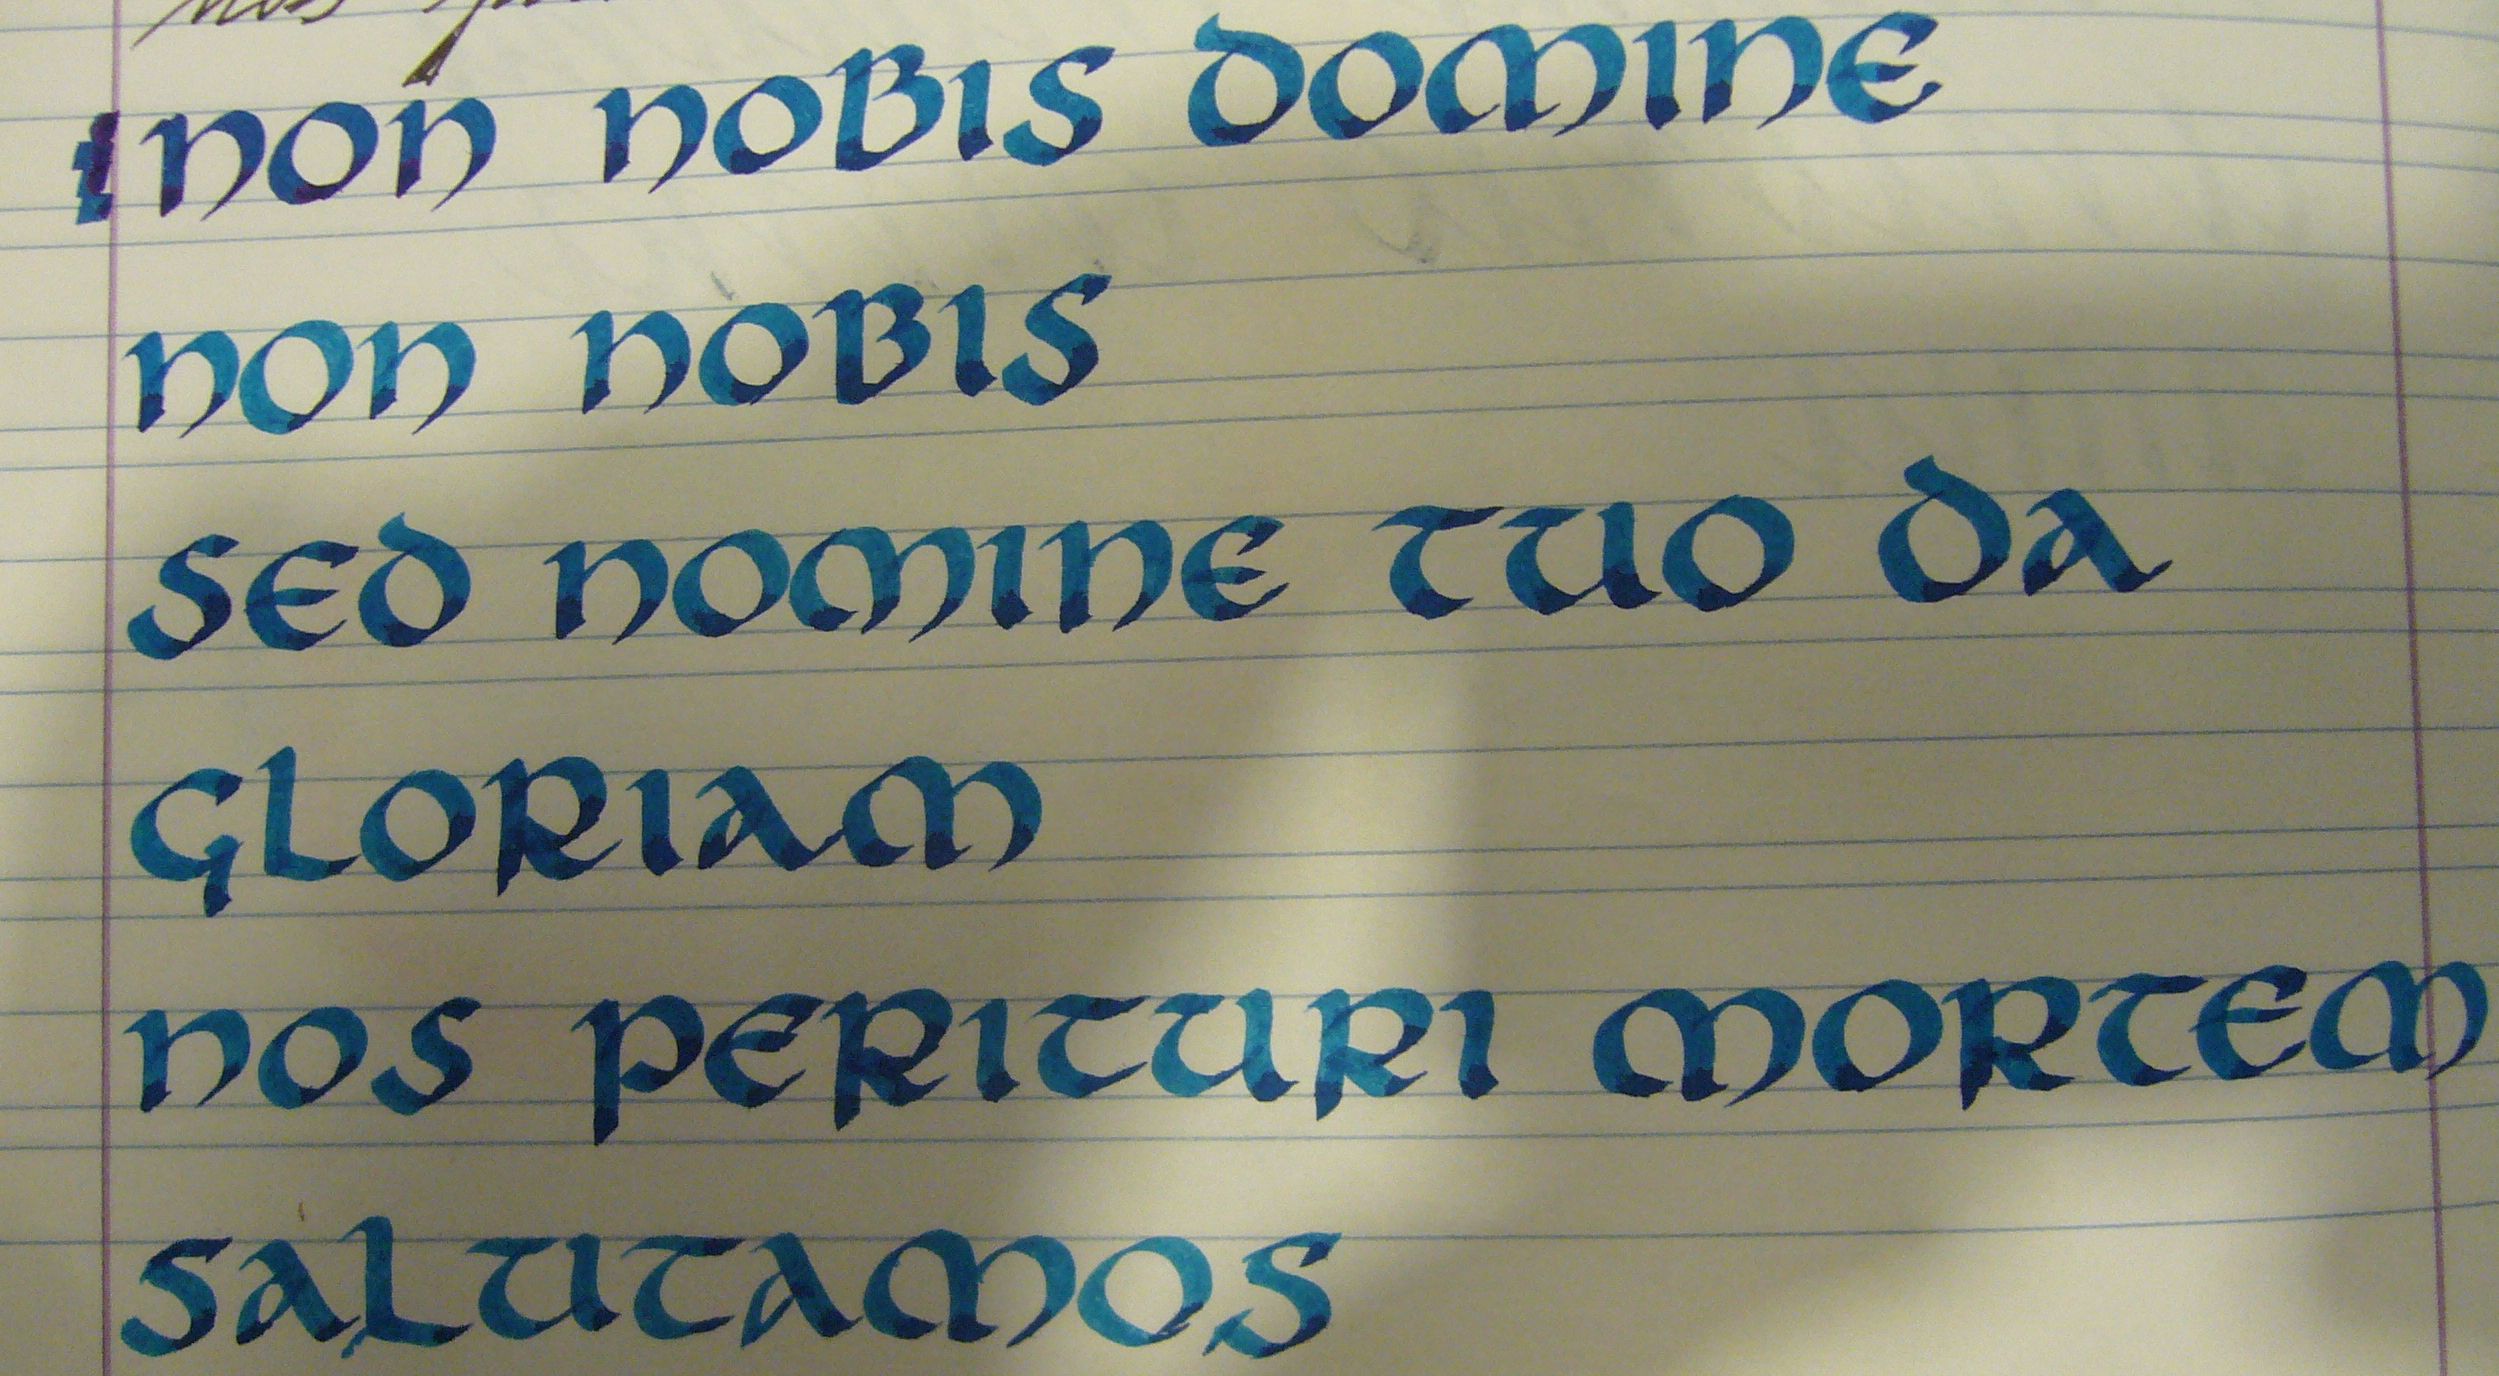 nos
non nobis domine
non nobis
sed nomine tuo da
gloriam
nos perituri mortem
salutamos